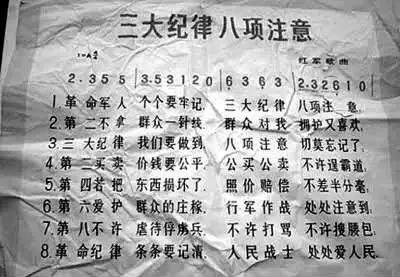 三大纪律八项注意
红军歌曲
2.35 5 | 3.53120 | 6 3 6 3 | 2.32610 |
1.革命军人 个个要牢记, 三大纪律 八项注意,
2.第二不拿 群众一针线, 群众对我 拥护又喜欢;
3.三大纪律 我们要做到, 八项注意 切莫忘记了,
4.第二买卖 价钱要公平, 公买公卖 不许逞霸道;
5.第四若把 东西损坏了, 照价赔偿 不差半分毫;
6.第六爱护 群众的庄稼, 行军作战 处处注意到;
7.第八不许 虐待俘虏兵, 不许打骂 不许搜腰包;
8.革命纪律 条条要记清, 人民战士 处处爱人民,